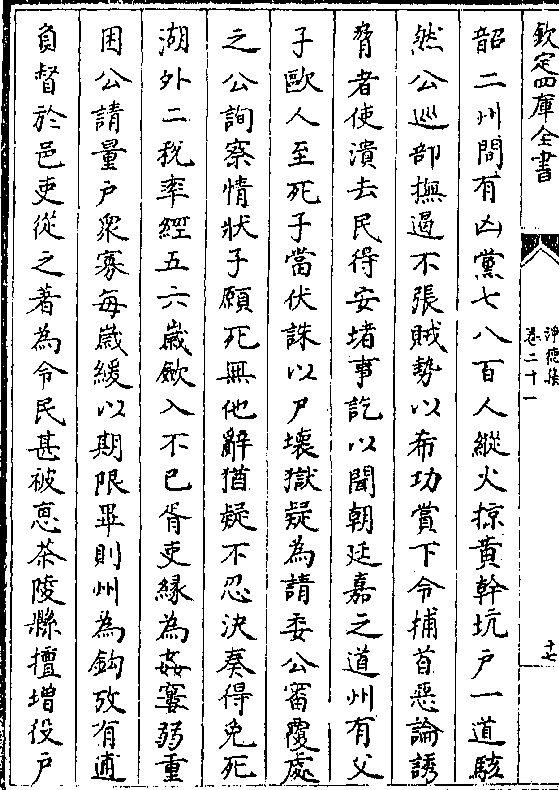 欽定四庫全書
淨德集
卷二十一
十七
韶二州間有凶黨七八百人縱火掠黄幹坑戶一道駭
然公巡部撫遏不張賊勢以希功賞下令捕首惡論誘
脅者使潰去民得安堵事訖以聞朝廷嘉之道州有父
子歐人至死子當伏誅以尸壞獄疑為請委公審覆處
之公詢察情狀子願死無他辭猶疑不忍決奏得免死
湖外二税率經五六歲歛入不已胥吏緣為姦寠弱重
困公請量戶衆寡每歲緩以期限畢則州為鈎攷有逋
負督於邑吏從之著為令民甚被惠茶陵縣擅增役戶